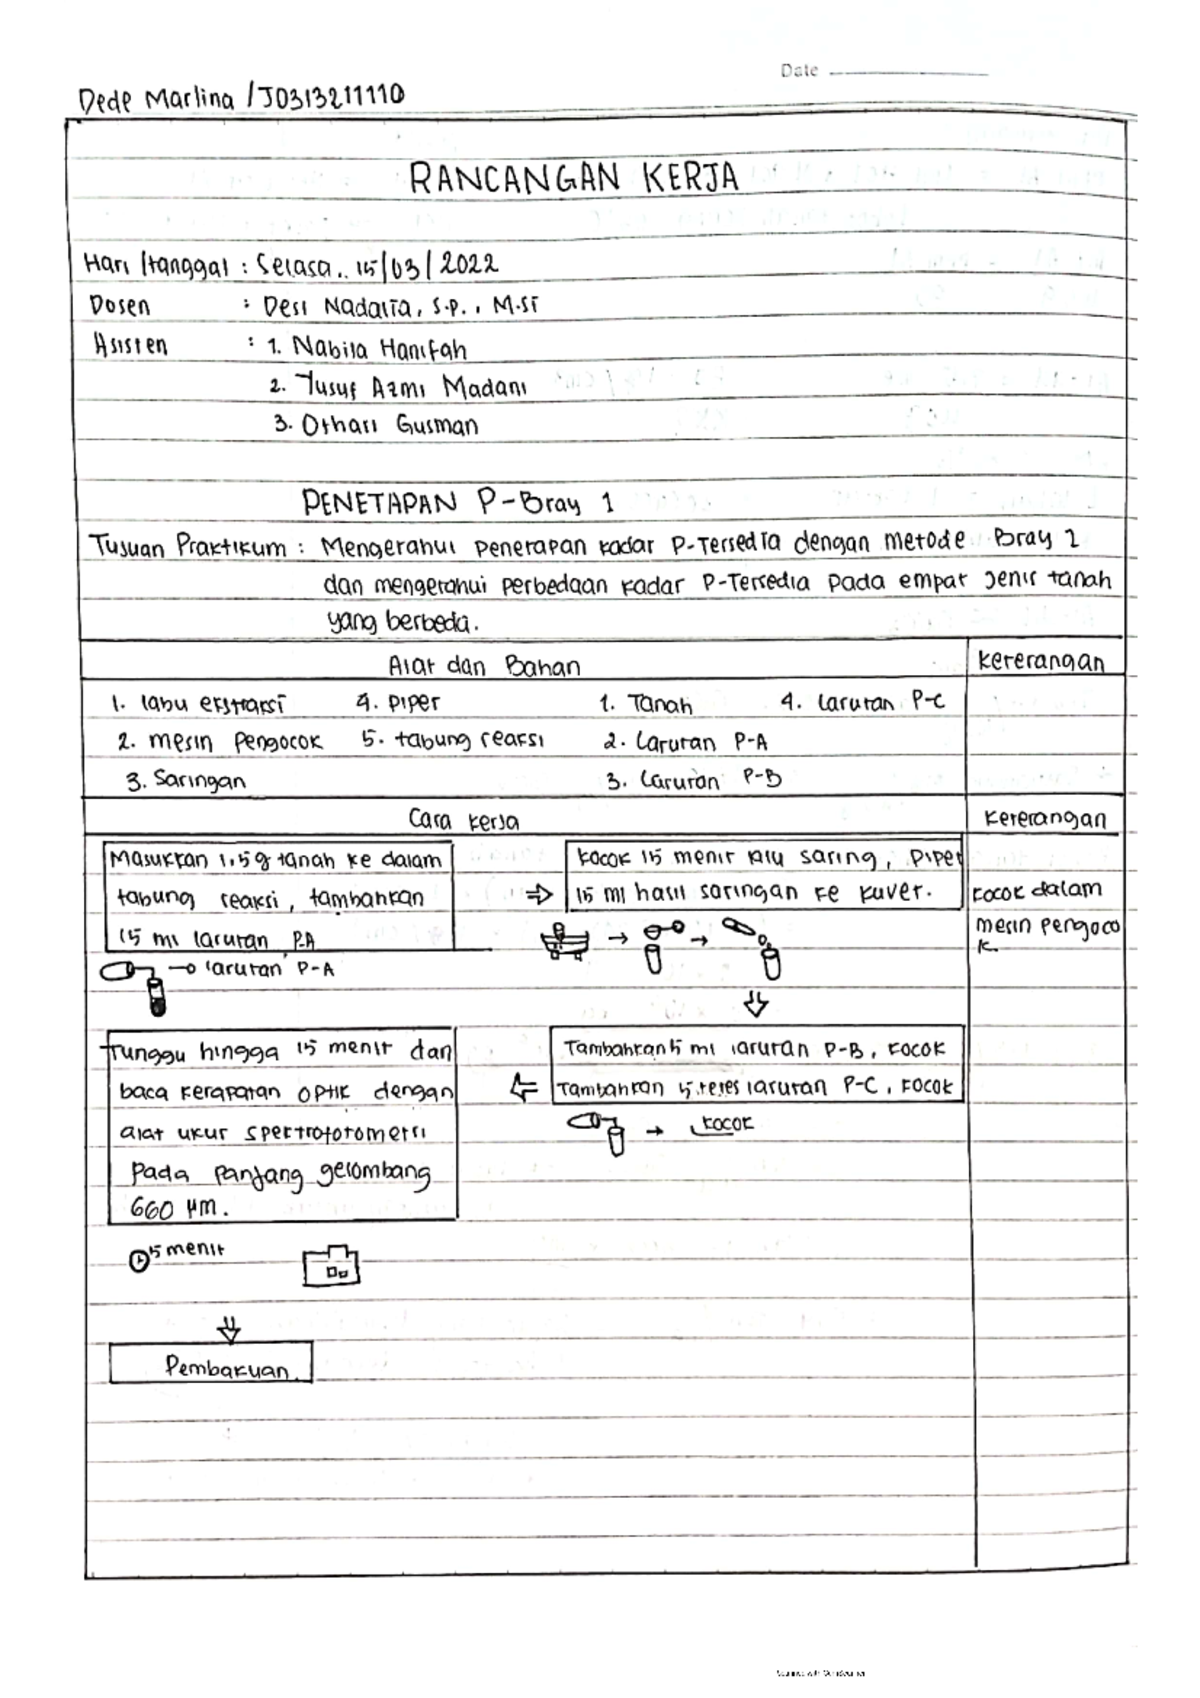 Date
Dede Marlina / J0313211110
RANCANGAN KERJA
Hari / tanggal : Selasa, 15/03/2022
Dosen : Desi Nadalia, S.P., M.Si
Asisten : 1. Nabila Hanifah
2. Yusuf Azmi Madani
3. Othari Gusman
PENETAPAN P-Bray 1
Tujuan Praktikum : Mengetahui penetapan kadar P-Tersedia dengan metode Bray 1
dan mengetahui perbedaan kadar P-Tersedia pada empat jenis tanah
yang berbeda.
Alat dan Bahan keterangan
1. labu ekstraksi 4. pipet 1. Tanah 4. Larutan P-C
2. mesin pengocok 5. tabung reaksi 2. Larutan P-A
3. Saringan 3. Larutan P-B
Cara kerja keterangan
Masukkan 1,5 g tanah ke dalam
tabung reaksi, tambahkan
15 ml larutan P-A
larutan P-A
kocok 15 menit lalu saring, pipet
15 ml hasil saringan ke kuvet.
kocok dalam
mesin pengoco
k.
Tambahkan 5 ml larutan P-B, kocok
Tambahkan 5 tetes larutan P-C, kocok
kocok
Tunggu hingga 15 menit dan
baca kerapatan optik dengan
alat ukur spektrofotometri
pada panjang gelombang
660 μm.
15 menit
Pembakuan.
Scanned with CamScanner